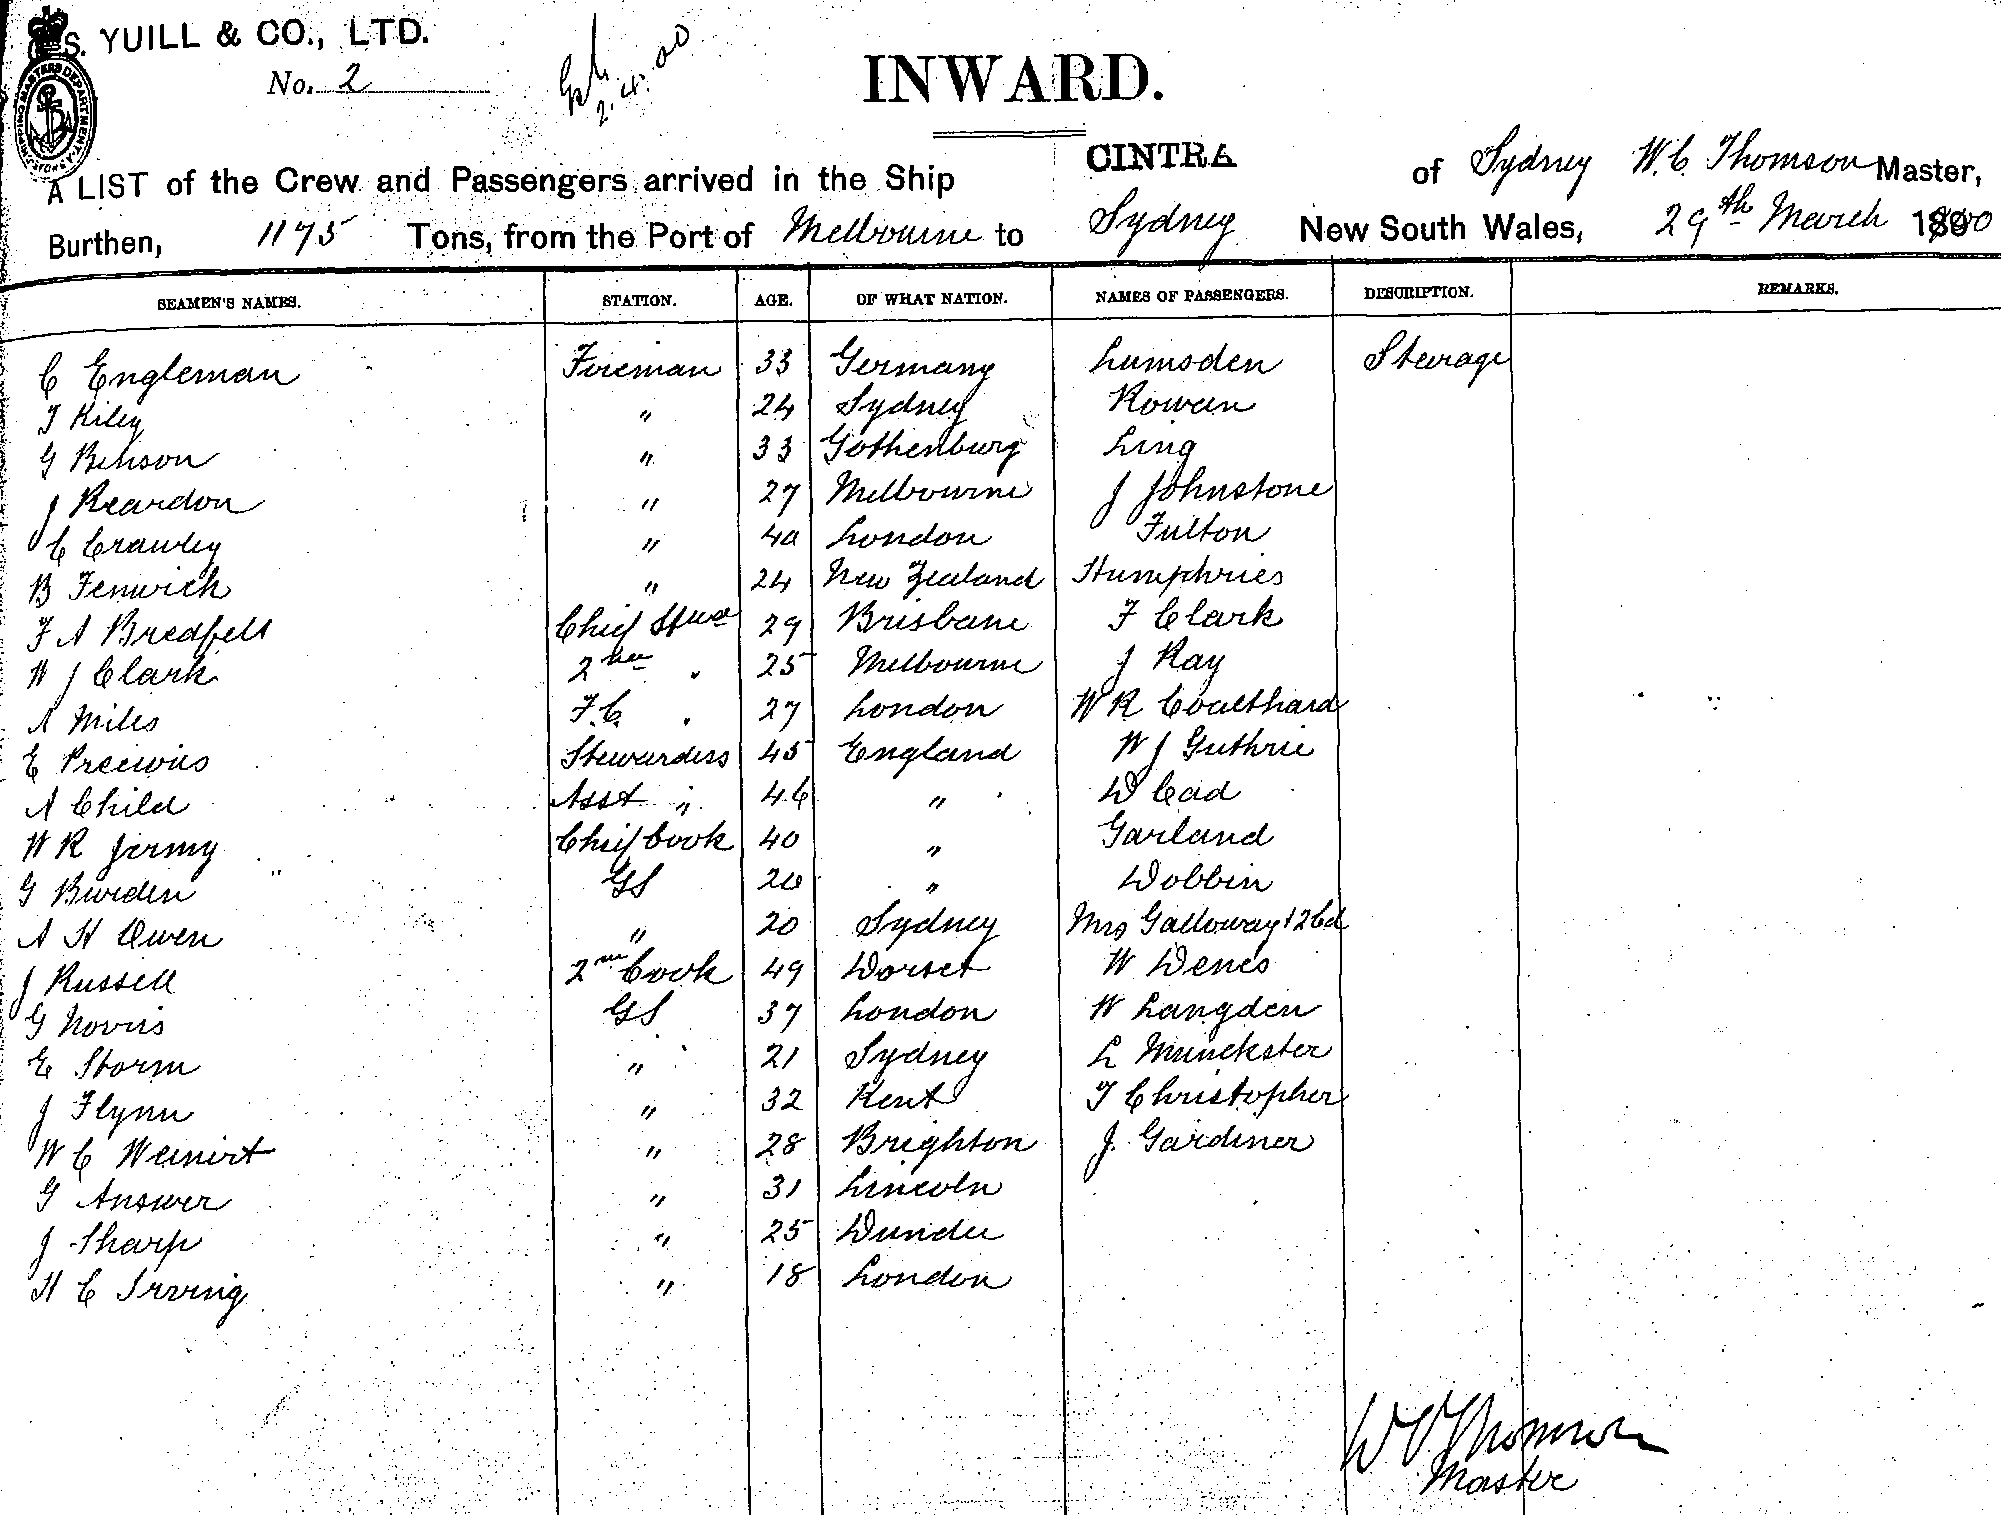 S. YUILL & CO., LTD.
No. 2
2.4.00
INWARD.
SHIPPING MASTERS DEPARTMENT
A LIST of the Crew and Passengers arrived in the Ship CINTRA of Sydney W. C. Thomson Master,
Burthen, 1175 Tons, from the Port of Melbourne to Sydney New South Wales, 29th March 1900
SEAMEN'S NAMES. STATION. AGE. OF WHAT NATION. NAMES OF PASSENGERS. DESCRIPTION. REMARKS.
C Engleman Fireman 33 Germany Lumsden Steerage
T Riley " 24 Sydney Rowan
G Benson " 33 Gothenburg Ling
J Reardon " 27 Melbourne J Johnstone
C Crawley " 40 London Fulton
B Fenwick " 24 New Zealand Humphries
F A Bredfelt Chief Stwd 29 Brisbane F Clark
W J Clark 2nd " 25 Melbourne J Ray
A Miles F.C. " 27 London W R Coulthard
E Stewardess 45 England W J Guthrie
A Child Asst " 46 " D Cad
W R Jermy Chief Cook 40 " Garland
G Burden GS 20 " Dobbin
A H Owen " 20 Sydney Mrs Galloway & 2 Cd
J Russell 2nd Cook 49 Dorset W Denes
G Novis GS 37 London W Langden
E Storm " 21 Sydney L Munckster
J Flynn " 32 Kent T Christopher
W C Weinert " 28 Brighton J. Gardiner
G Answer " 31 Lincoln
J Sharp " 25 Dundee
H C Irving " 18 London
W C Thomson
Master